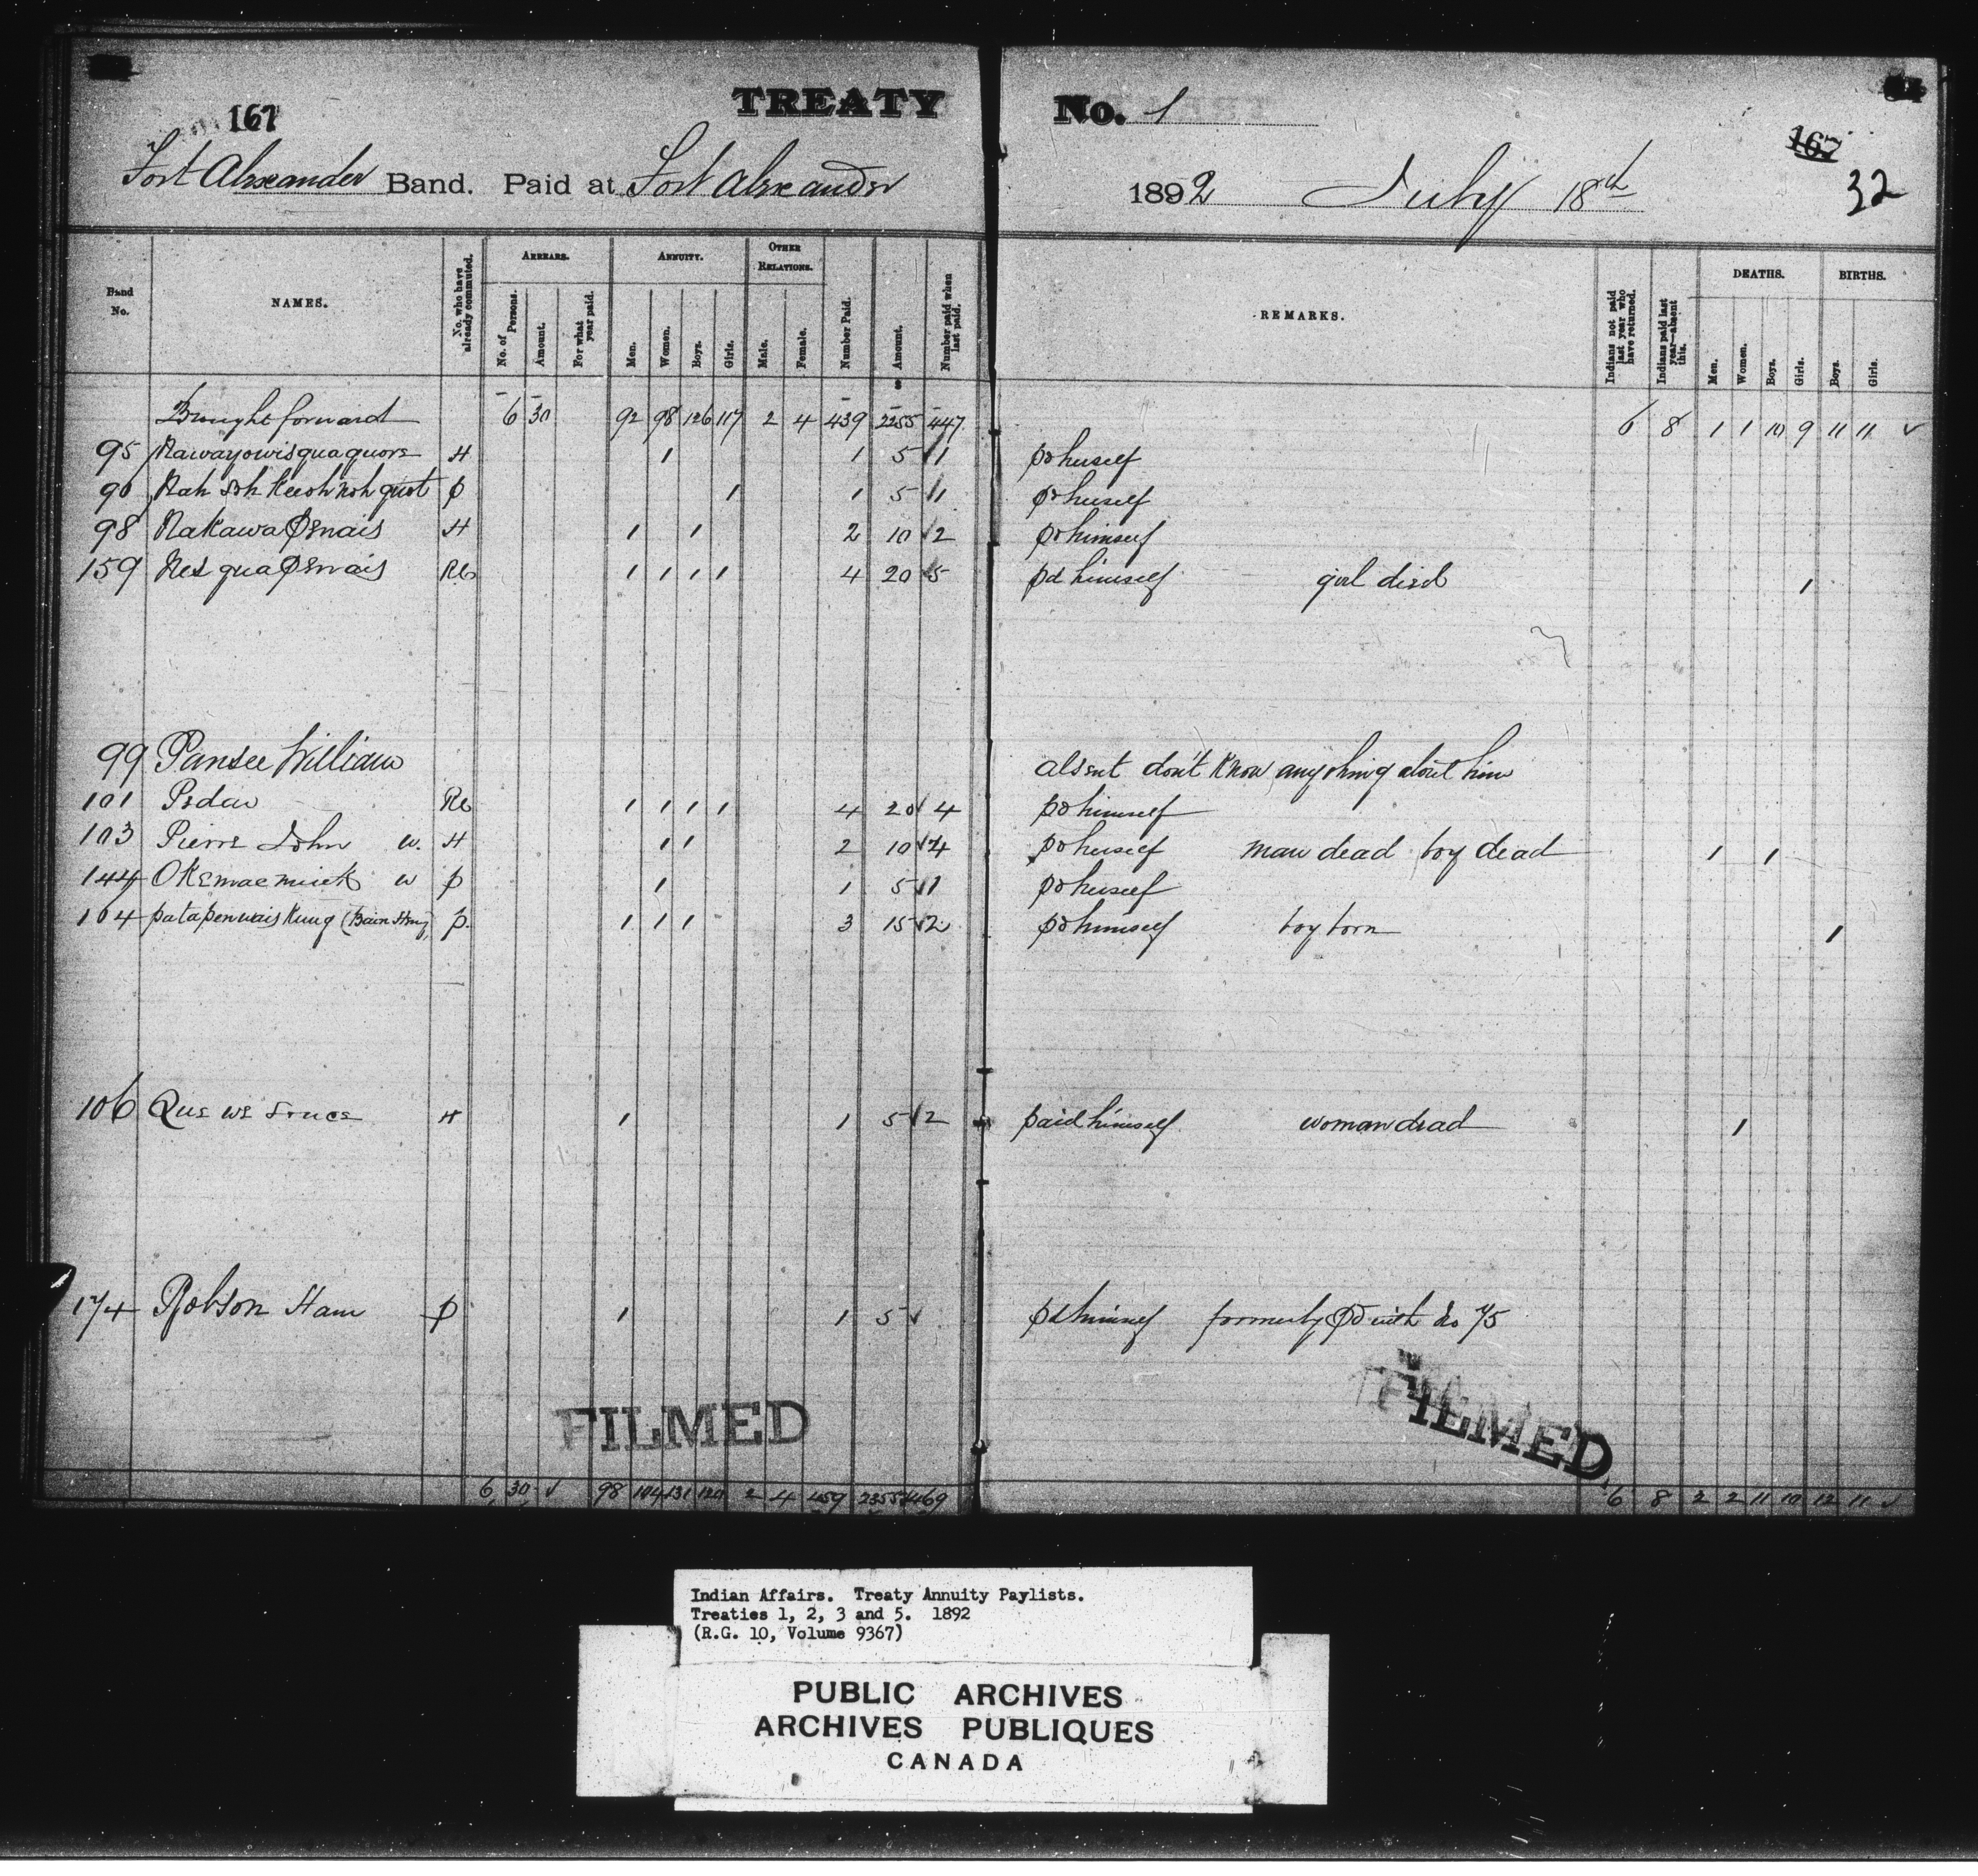 167
TREATY No. 1
167
32
Fort Alexander Band. Paid at Fort Alexander 1892 July 18th
Band No. NAMES. No. who have already commuted. ARREARS. No. of Persons. Amount. For what year paid. ANNUITY. Men. Women. Boys. Girls. OTHER RELATIONS. Male. Female. Number Paid. Amount. Number paid when last paid. REMARKS. Indians not paid last year who have returned. Indians paid last year—absent this. DEATHS. Men. Women. Boys. Girls. BIRTHS. Boys. Girls.
Brought forward 6 30 92 98 126 117 2 4 439 2255 447 6 8 1 1 10 9 11 11 ✓
95 Nawayowisquaquore H 1 1 5 ✓ 1 pd herself
96 Nah soh Keeshnoh quot p 1 1 5 ✓ 1 pd herself
98 Nakawa Penais H 1 1 2 10 ✓ 2 pd himself
159 Nes qua Penais RC 1 1 1 1 4 20 ✓ 5 pd himself girl died 1
99 Pansee William absent don't know anything about him
101 Pedau RC 1 1 1 1 4 20 ✓ 4 pd himself
103 Pierre John w. H 1 1 2 10 ✓ 4 pd herself man dead boy dead 1 1
144 Okemacmick w p 1 1 5 ✓ 1 pd herself
104 patapenwais Kung p. 1 1 1 3 15 ✓ 2 pd himself boy born 1
106 Que we H 1 1 5 ✓ 2 paid himself woman dead 1
174 Robson Ham p 1 1 5 ✓ pd himself formerly Pd with No 75
FILMED
FILMED
6 30 ✓ 98 104 131 120 2 4 459 2355 ✓ 469 6 8 2 2 11 10 12 11 ✓
Indian Affairs. Treaty Annuity Paylists.
Treaties 1, 2, 3 and 5. 1892
(R.G. 10, Volume 9367)
PUBLIC ARCHIVES
ARCHIVES PUBLIQUES
CANADA